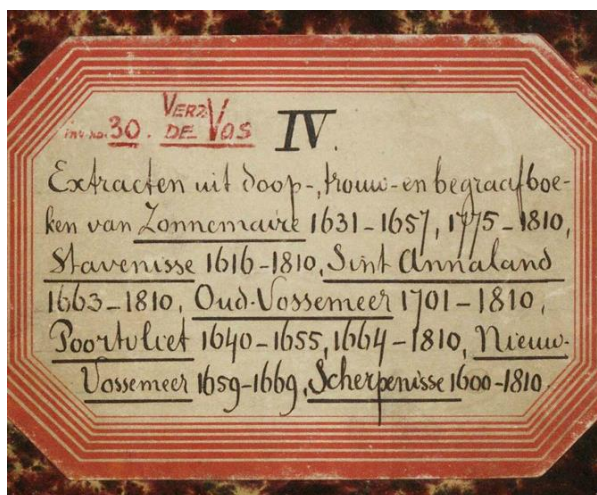 inv. no. 30. VERZ. DE VOS IV.
Extracten uit doop-, trouw- en begraafboe-
ken van Zonnemaire 1631-1657, 1775-1810,
Stavenisse 1616-1810, Sint Annaland
1663-1810, Oud-Vossemeer 1701-1810,
Poortvliet 1640-1655, 1664-1810, Nieuw-
Vossemeer 1659-1669, Scherpenisse 1600-1810.